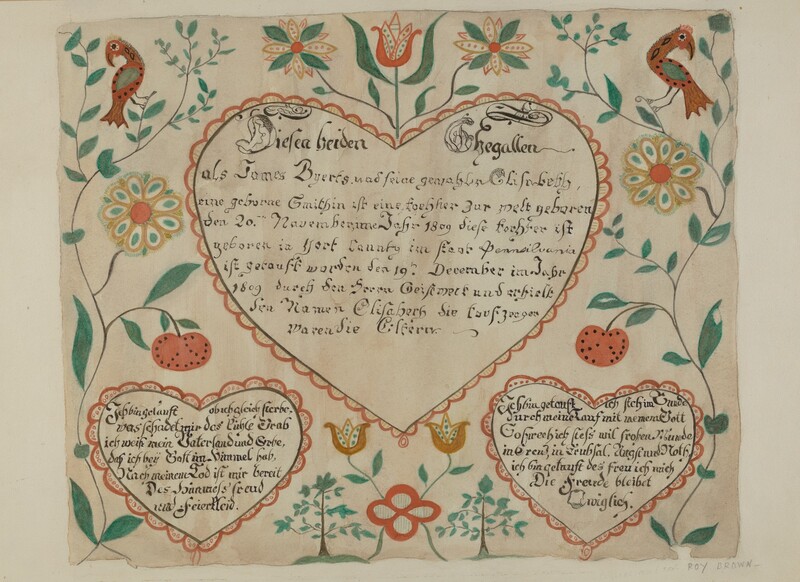 Diesen beiden Ehegatten
als James Byerts und seine gemahlin Elisabeth,
eine geborne Smithin ist eine tochter zur welt geboren
den 20.ten November im Jahr 1809 diese tochter ist
geboren in York County im staat Pennsilvania
ist getauft worden den 19.ten December im Jahr
1809 durch den Herrn Geistweit und erhielt
den Namen Elisabeth die taufzeugen
waren die Eltern
Ich bin getauft ob ich gleich sterbe,
was schadet mir das kühle Grab
ich weiß mein Vaterland und Erbe,
das ich bey Gott im Himmel hab,
Nach meinem Tod ist mir bereit
Des Himmels freud
und Feierkleid.
Ich bin getauft ich steh im Bunde
durch meine Tauf mit meinem Gott
So sprech ich stets mit frohem Munde
in Creutz, in Trübsal, Angst und Noth
ich bin getauft des freu ich mich
Die Freude bleibet
Ewiglich.
ROY BROWN